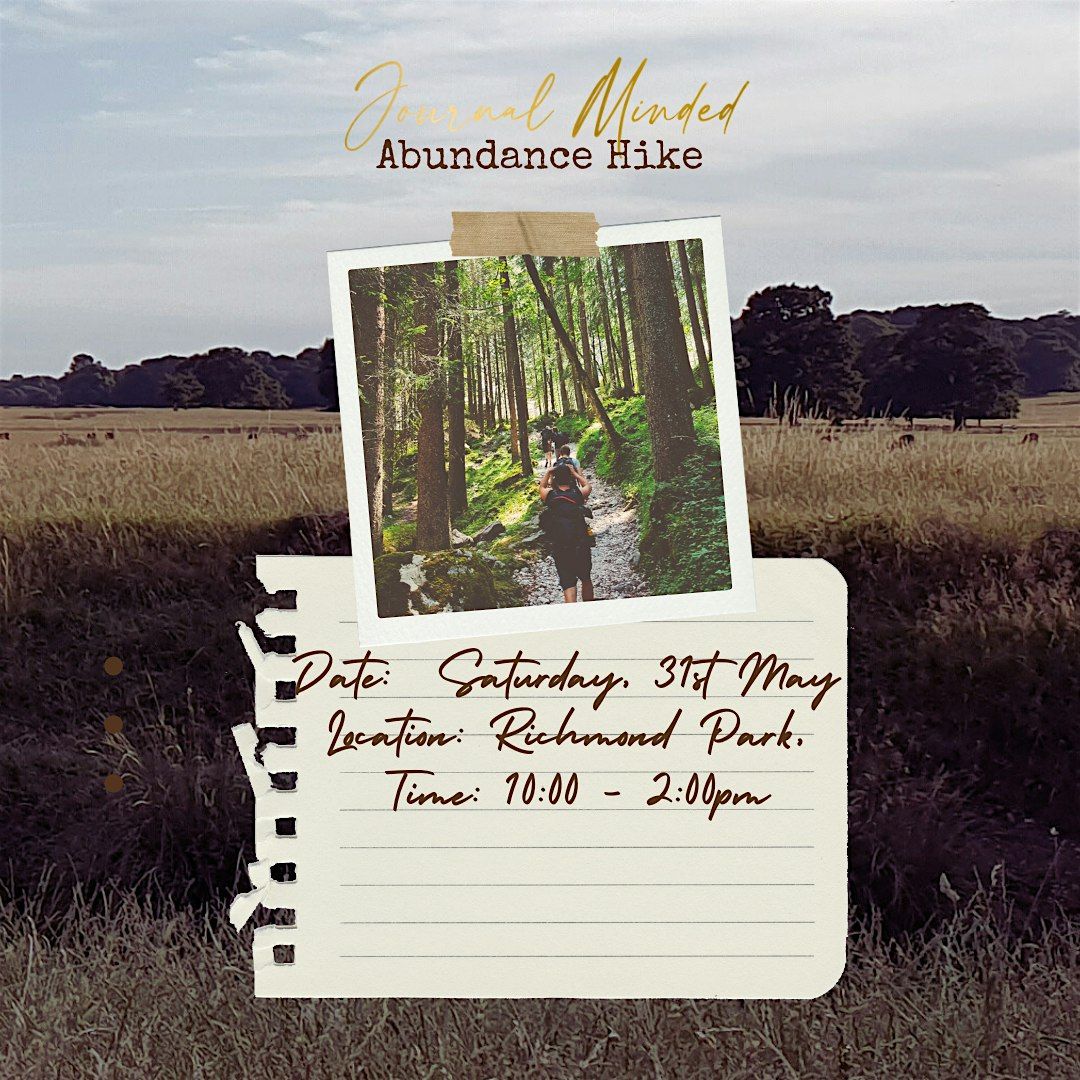 Journal Minded
Abundance Hike
Date: Saturday, 31st May
Location: Richmond Park,
Time: 10:00 - 2:00pm